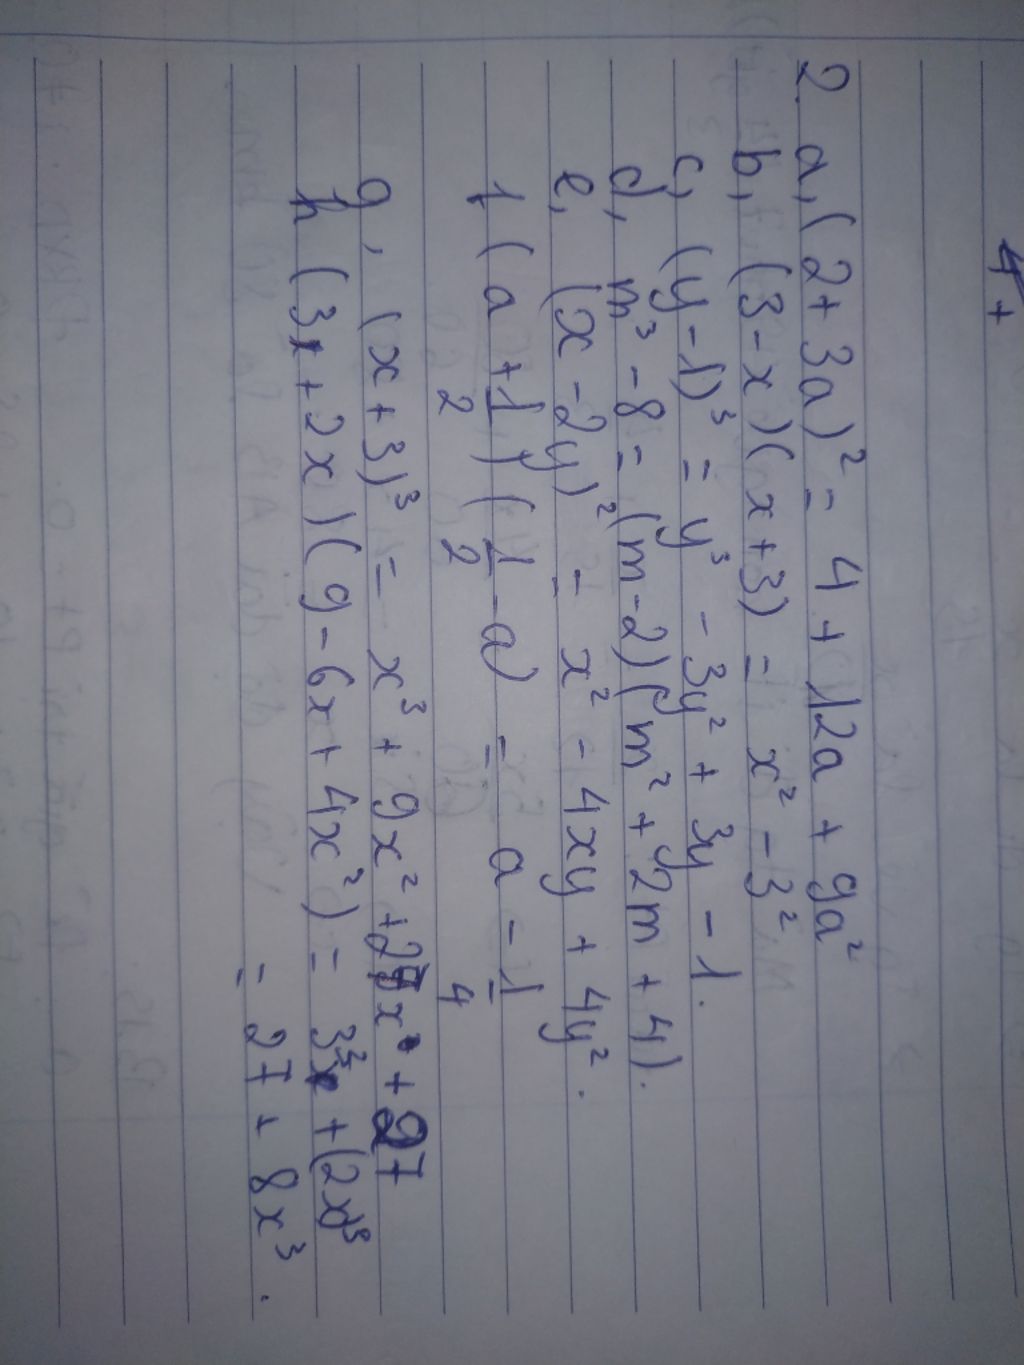 4+
2. a, (2 + 3a)² = 4 + 12a + 9a²
b, (3 - x)(x + 3) = x² - 3²
c, (y - 1)³ = y³ - 3y² + 3y - 1.
d, m³ - 8 = (m - 2)(m² + 2m + 4).
e, (x - 2y)² = x² - 4xy + 4y².
f (a + 1/2)(1/2 - a) = a - 1/4
g, (x + 3)³ = x³ + 9x² + 27x + 27
h (3 + 2x)(9 - 6x + 4x²) = 3³ + (2x)³
= 27 + 8x³.